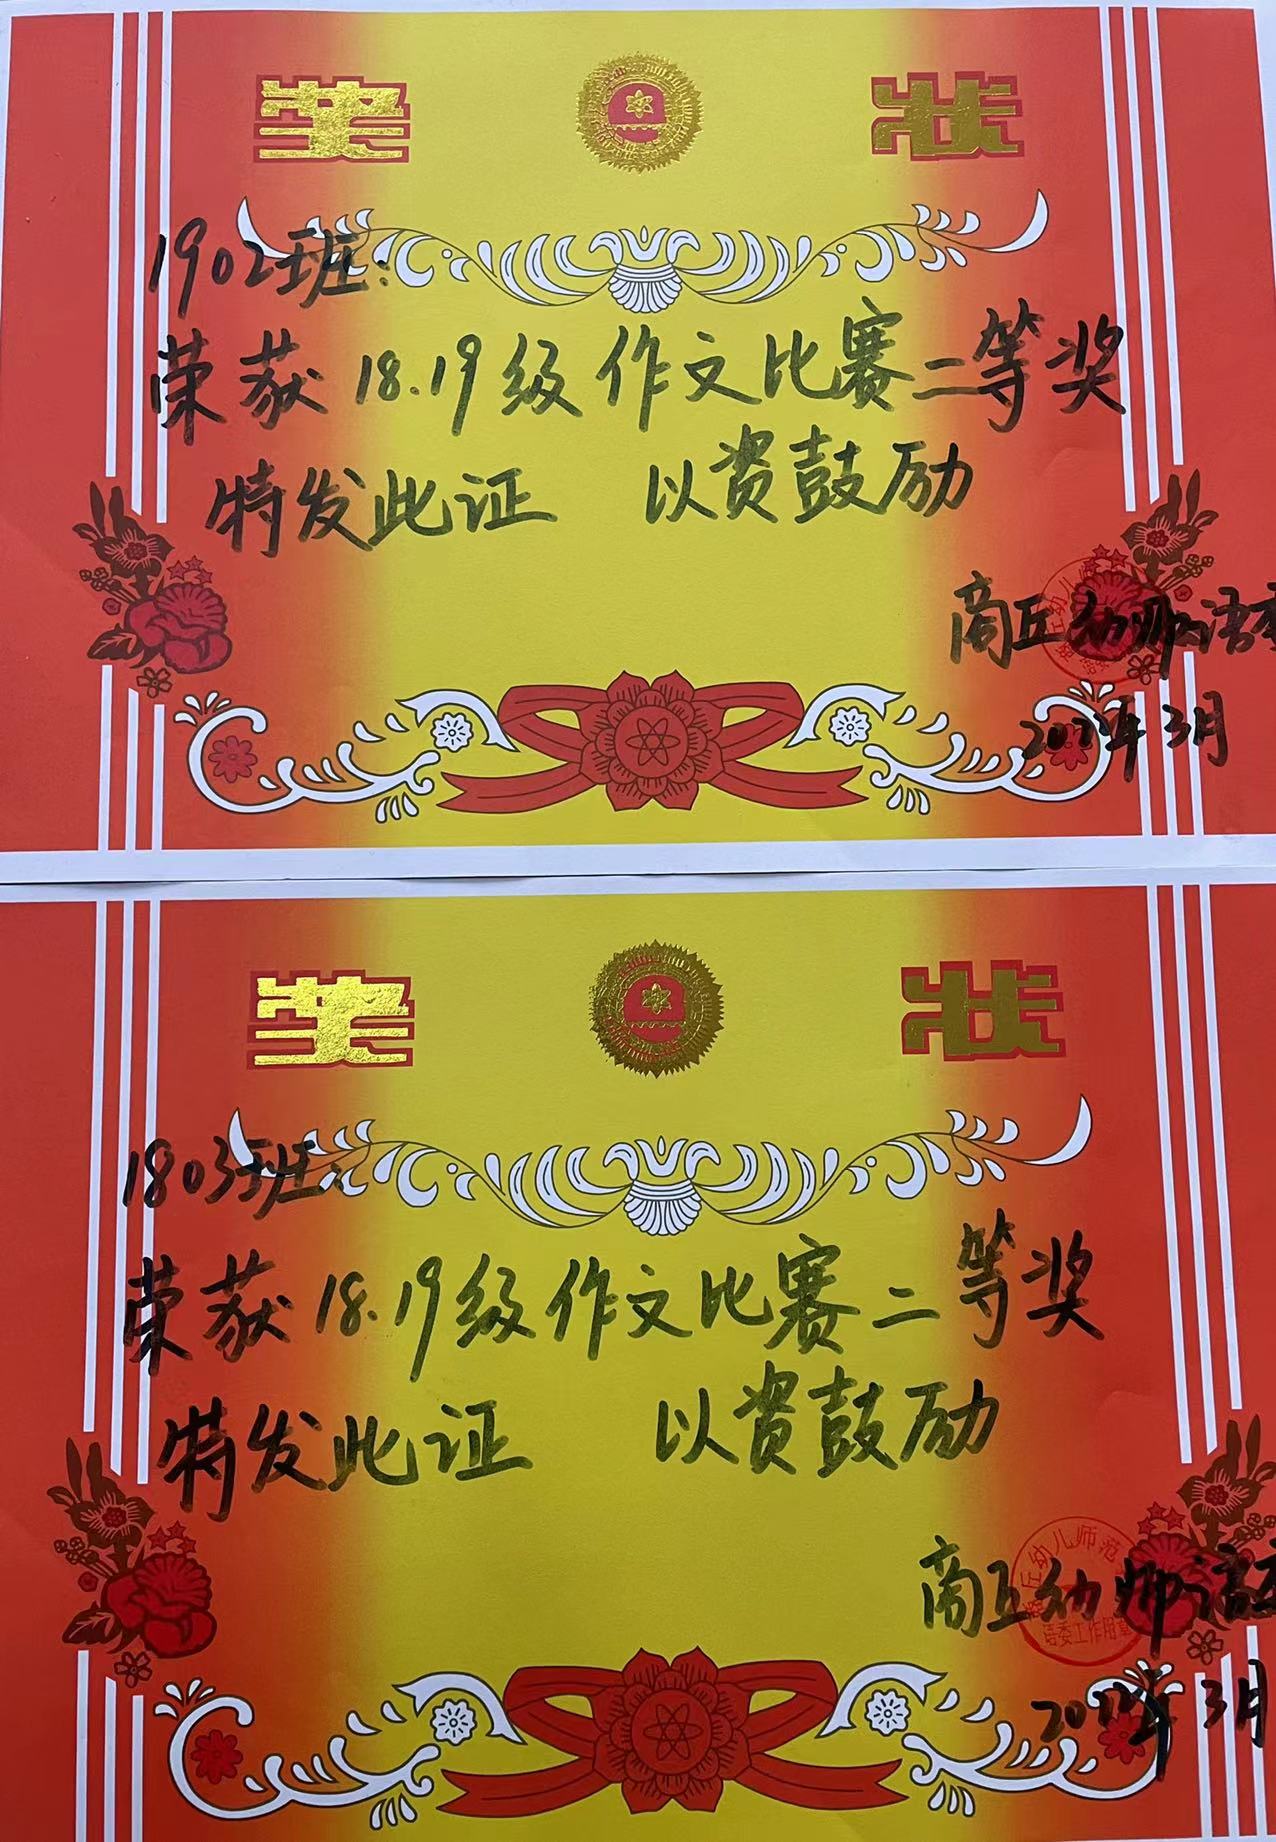 奖 状
1902班:
荣获18.19级作文比赛二等奖
特发此证 以资鼓励
商丘幼师语
3月
奖 状
1803班:
荣获18.19级作文比赛二等奖
特发此证 以资鼓励
丘幼儿师范
语委工作用章
商丘幼师语
3月